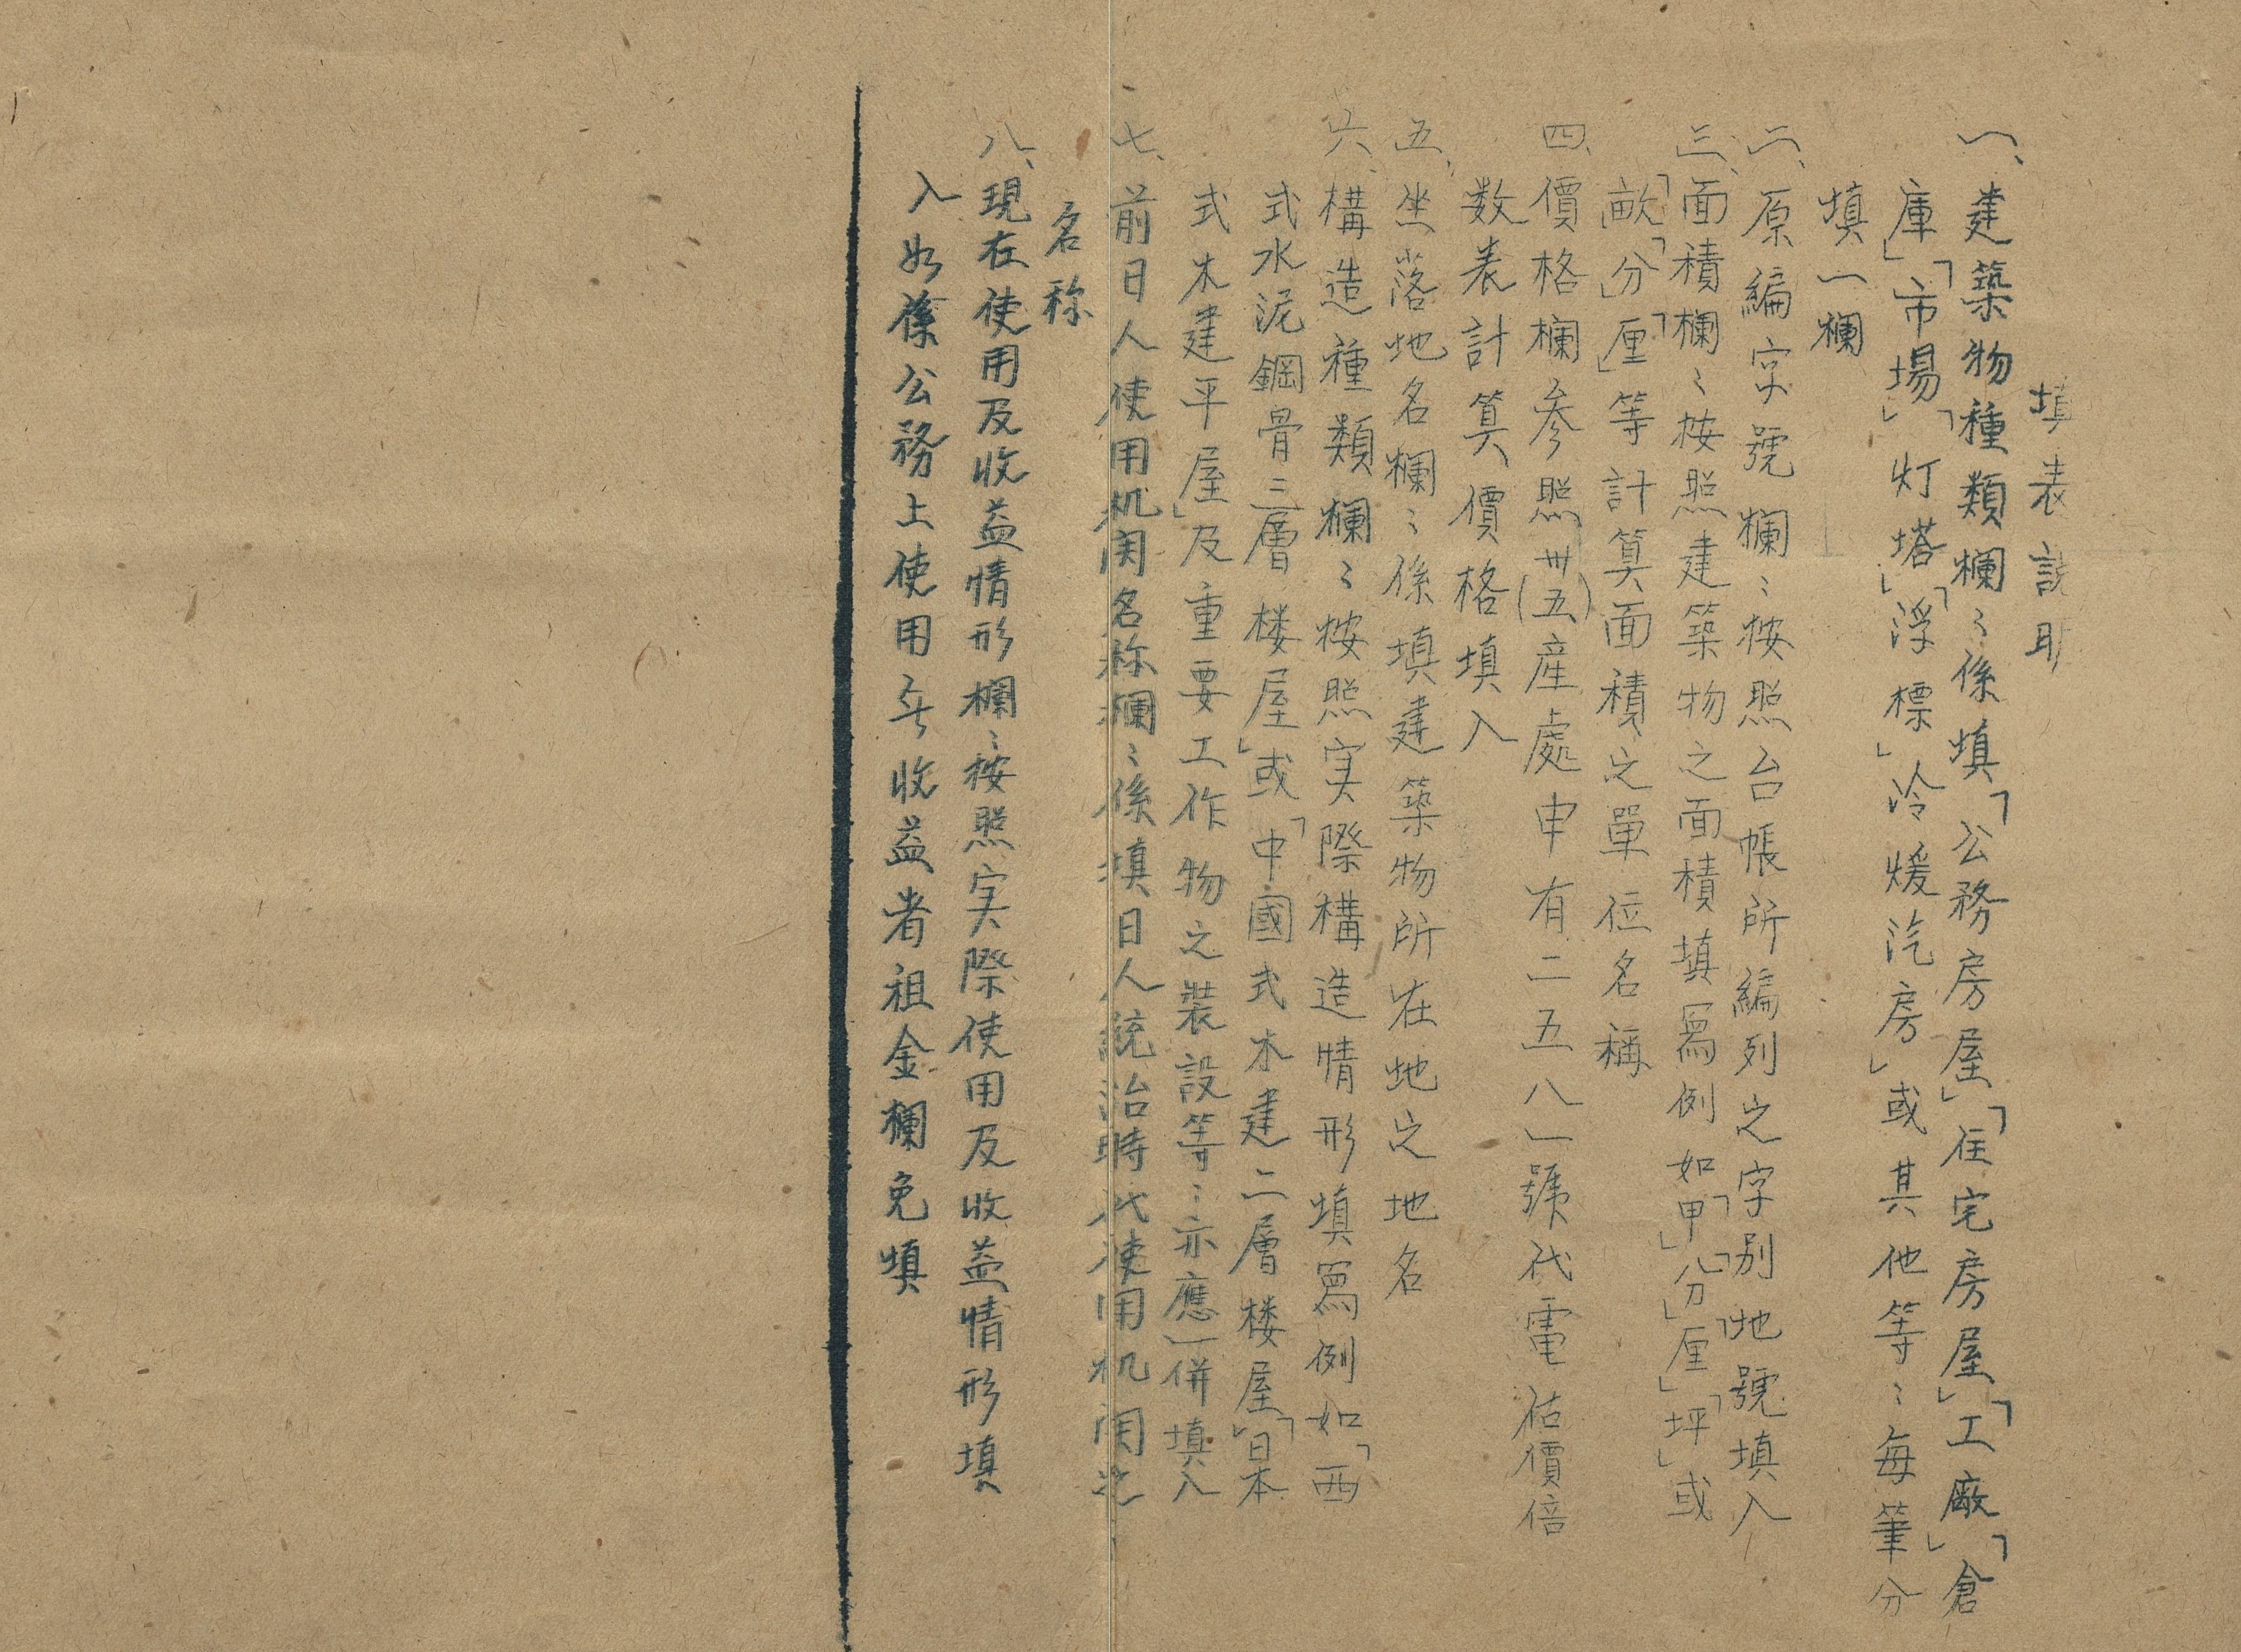 填表説明
一、建築物種類欄：係填「公務房屋」「住宅房屋」「工廠」「倉
庫」「市場」「灯塔」「浮標」冷煖汽房」或其他等：每筆分
填一欄
二、原編字號欄：按照台帳所編列之字別地號填入
三、面積欄：按照建築物之面積填寫例如「甲」「分」「厘」「坪」或
「畝」「分」「厘」等計算面積之單位名稱
四、價格欄參照卅(五)產處申有二五八一號代電估價倍
数表計算價格填入
五、坐落地名欄：係填建築物所在地之地名
六、構造種類欄：按照実際構造情形填寫例如「西
式水泥鋼骨三層楼屋」或「中國式木建二層楼屋」「日本
式木建平屋」及重要工作物之裝設等：亦應一併填入
七、前日人使用机関名称欄：係填日人統治時代使用机関之
名称
八、現在使用及收益情形欄：按照実際使用及收益情形填
入如係公務上使用無收益者祖金欄免填